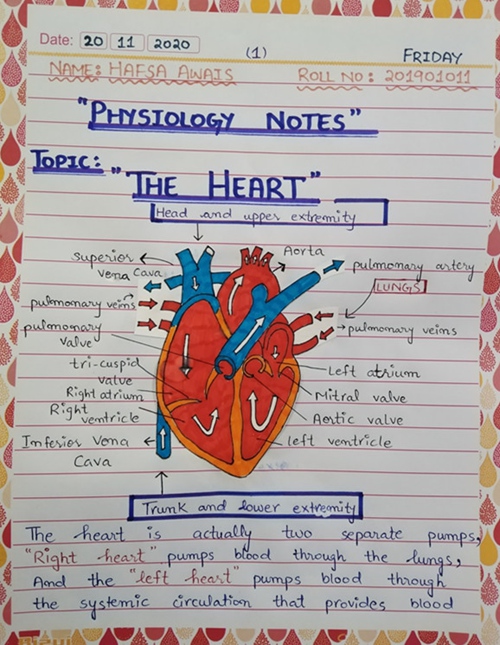 Date: 20 11 2020
(1)
FRIDAY
NAME: HAFSA AWAIS
ROLL NO: 201901011
"PHYSIOLOGY NOTES"
TOPIC: "THE HEART"
Head and upper extremity
superior
vena cava
Aorta
pulmonary artery
LUNGS
pulmonary veins
pulmonary veins
pulmonary
valve
tri-cuspid
valve
Left atrium
Right atrium
Mitral valve
Right
ventricle
Aortic valve
left ventricle
Inferior Vena
Cava
Trunk and lower extremity
The heart is actually two separate pumps,
"Right heart" pumps blood through the lungs,
And the "left heart" pumps blood through
the systemic circulation that provides blood